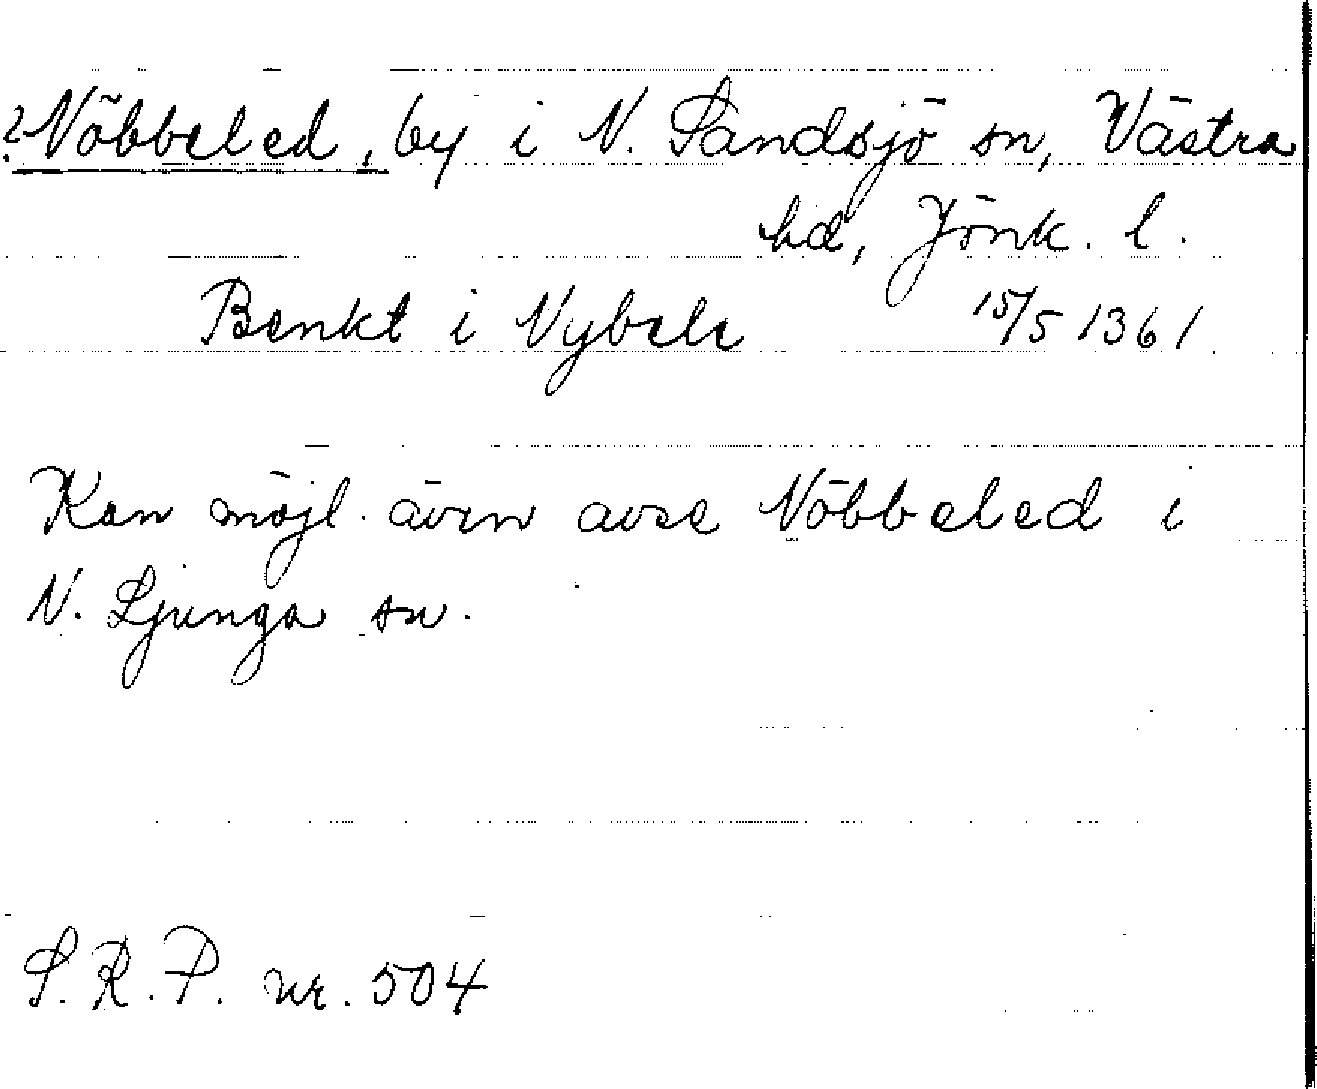 ? Nöbbeled, by i N. Sandsjö sn, Västra
hd, Jönk. l.
Benkt i Nybele 15/5 1361
Kan möjl. även avse Nöbbeled i
N. Ljunga sn.
S. R. P. nr. 504